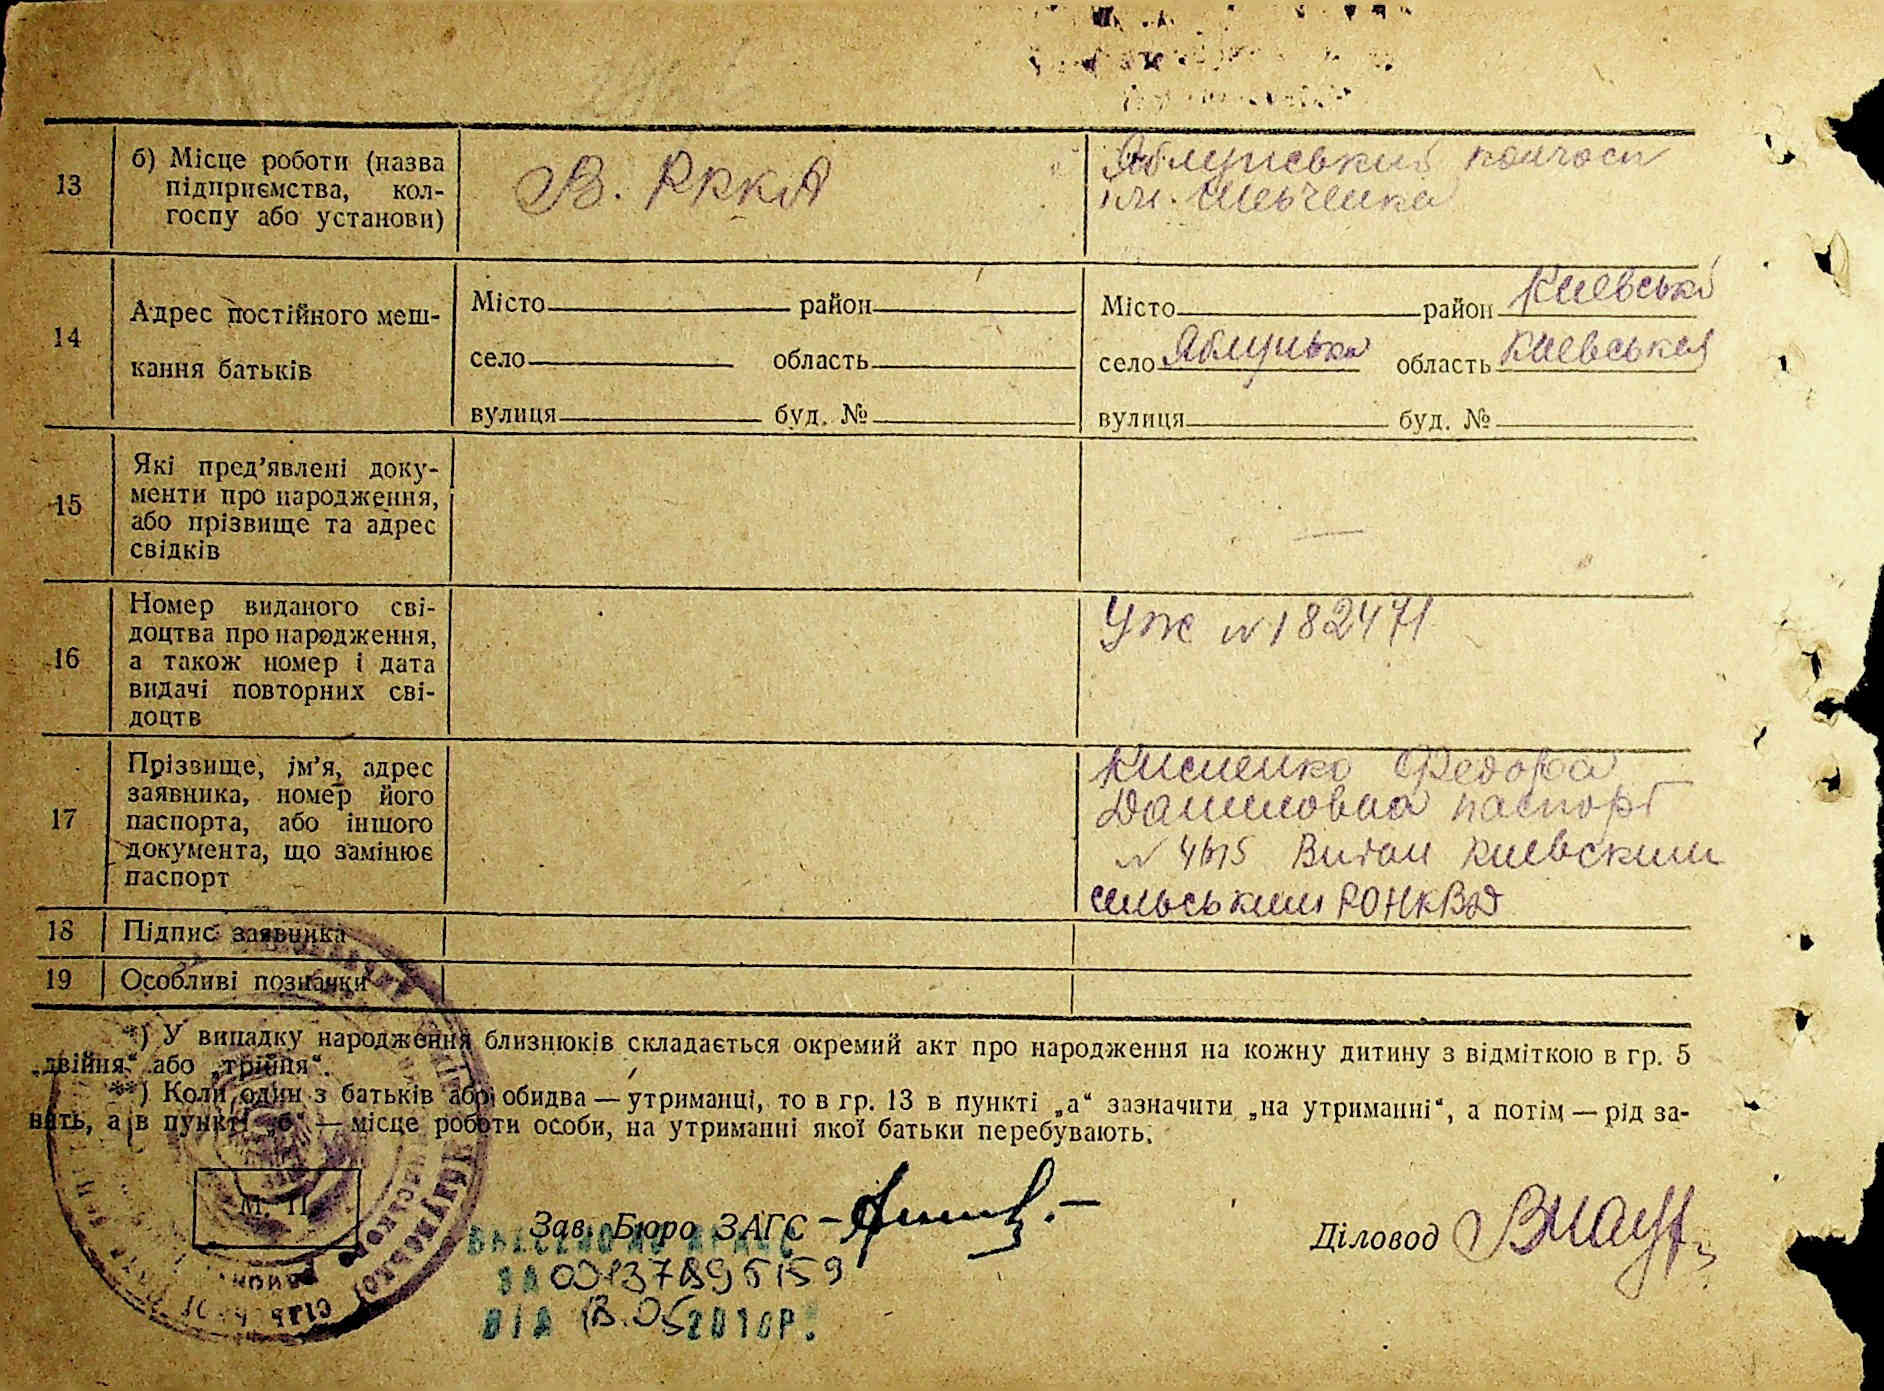 13
б) Місце роботи (назва
підприємства, кол-
госпу або установи)
В. РККА
Яблунський колгосп
ім. Шевченка
14
Адрес постійного меш-
кання батьків
Місто район
село область
вулиця буд. №
Місто район Киевський
село Яблунька область Киевська
вулиця буд. №
15
Які пред’явлені доку-
менти про народження,
або прізвище та адрес
свідків
—
16
Номер виданого сві-
доцтва про народження,
а також номер і дата
видачі повторних сві-
доцтв
УЖ №182471
17
Прізвище, ім’я, адрес
заявника, номер його
паспорта, або іншого
документа, що замінює
паспорт
Федора
Даниловна паспорт
Видан Киевским
сельським РОНКВД
18
Підпис заявника
19
Особливі позначки
*) У випадку народження близнюків складається окремий акт про народження на кожну дитину з відміткою в гр. 5
„двійня“ або „трійня“.
**) Коли один з батьків або обидва — утриманці, то в гр. 13 в пункті „а“ зазначити „на утриманні“, а потім — рід за-
нять, а в пункті „б“ — місце роботи особи, на утриманні якої батьки перебувають.
М. П.
Зав. Бюро ЗАГС
Діловод
ВНЕСЕНО ДО ДРАЦС
ЗА 00137895159
ВІД 18.05 2010Р.